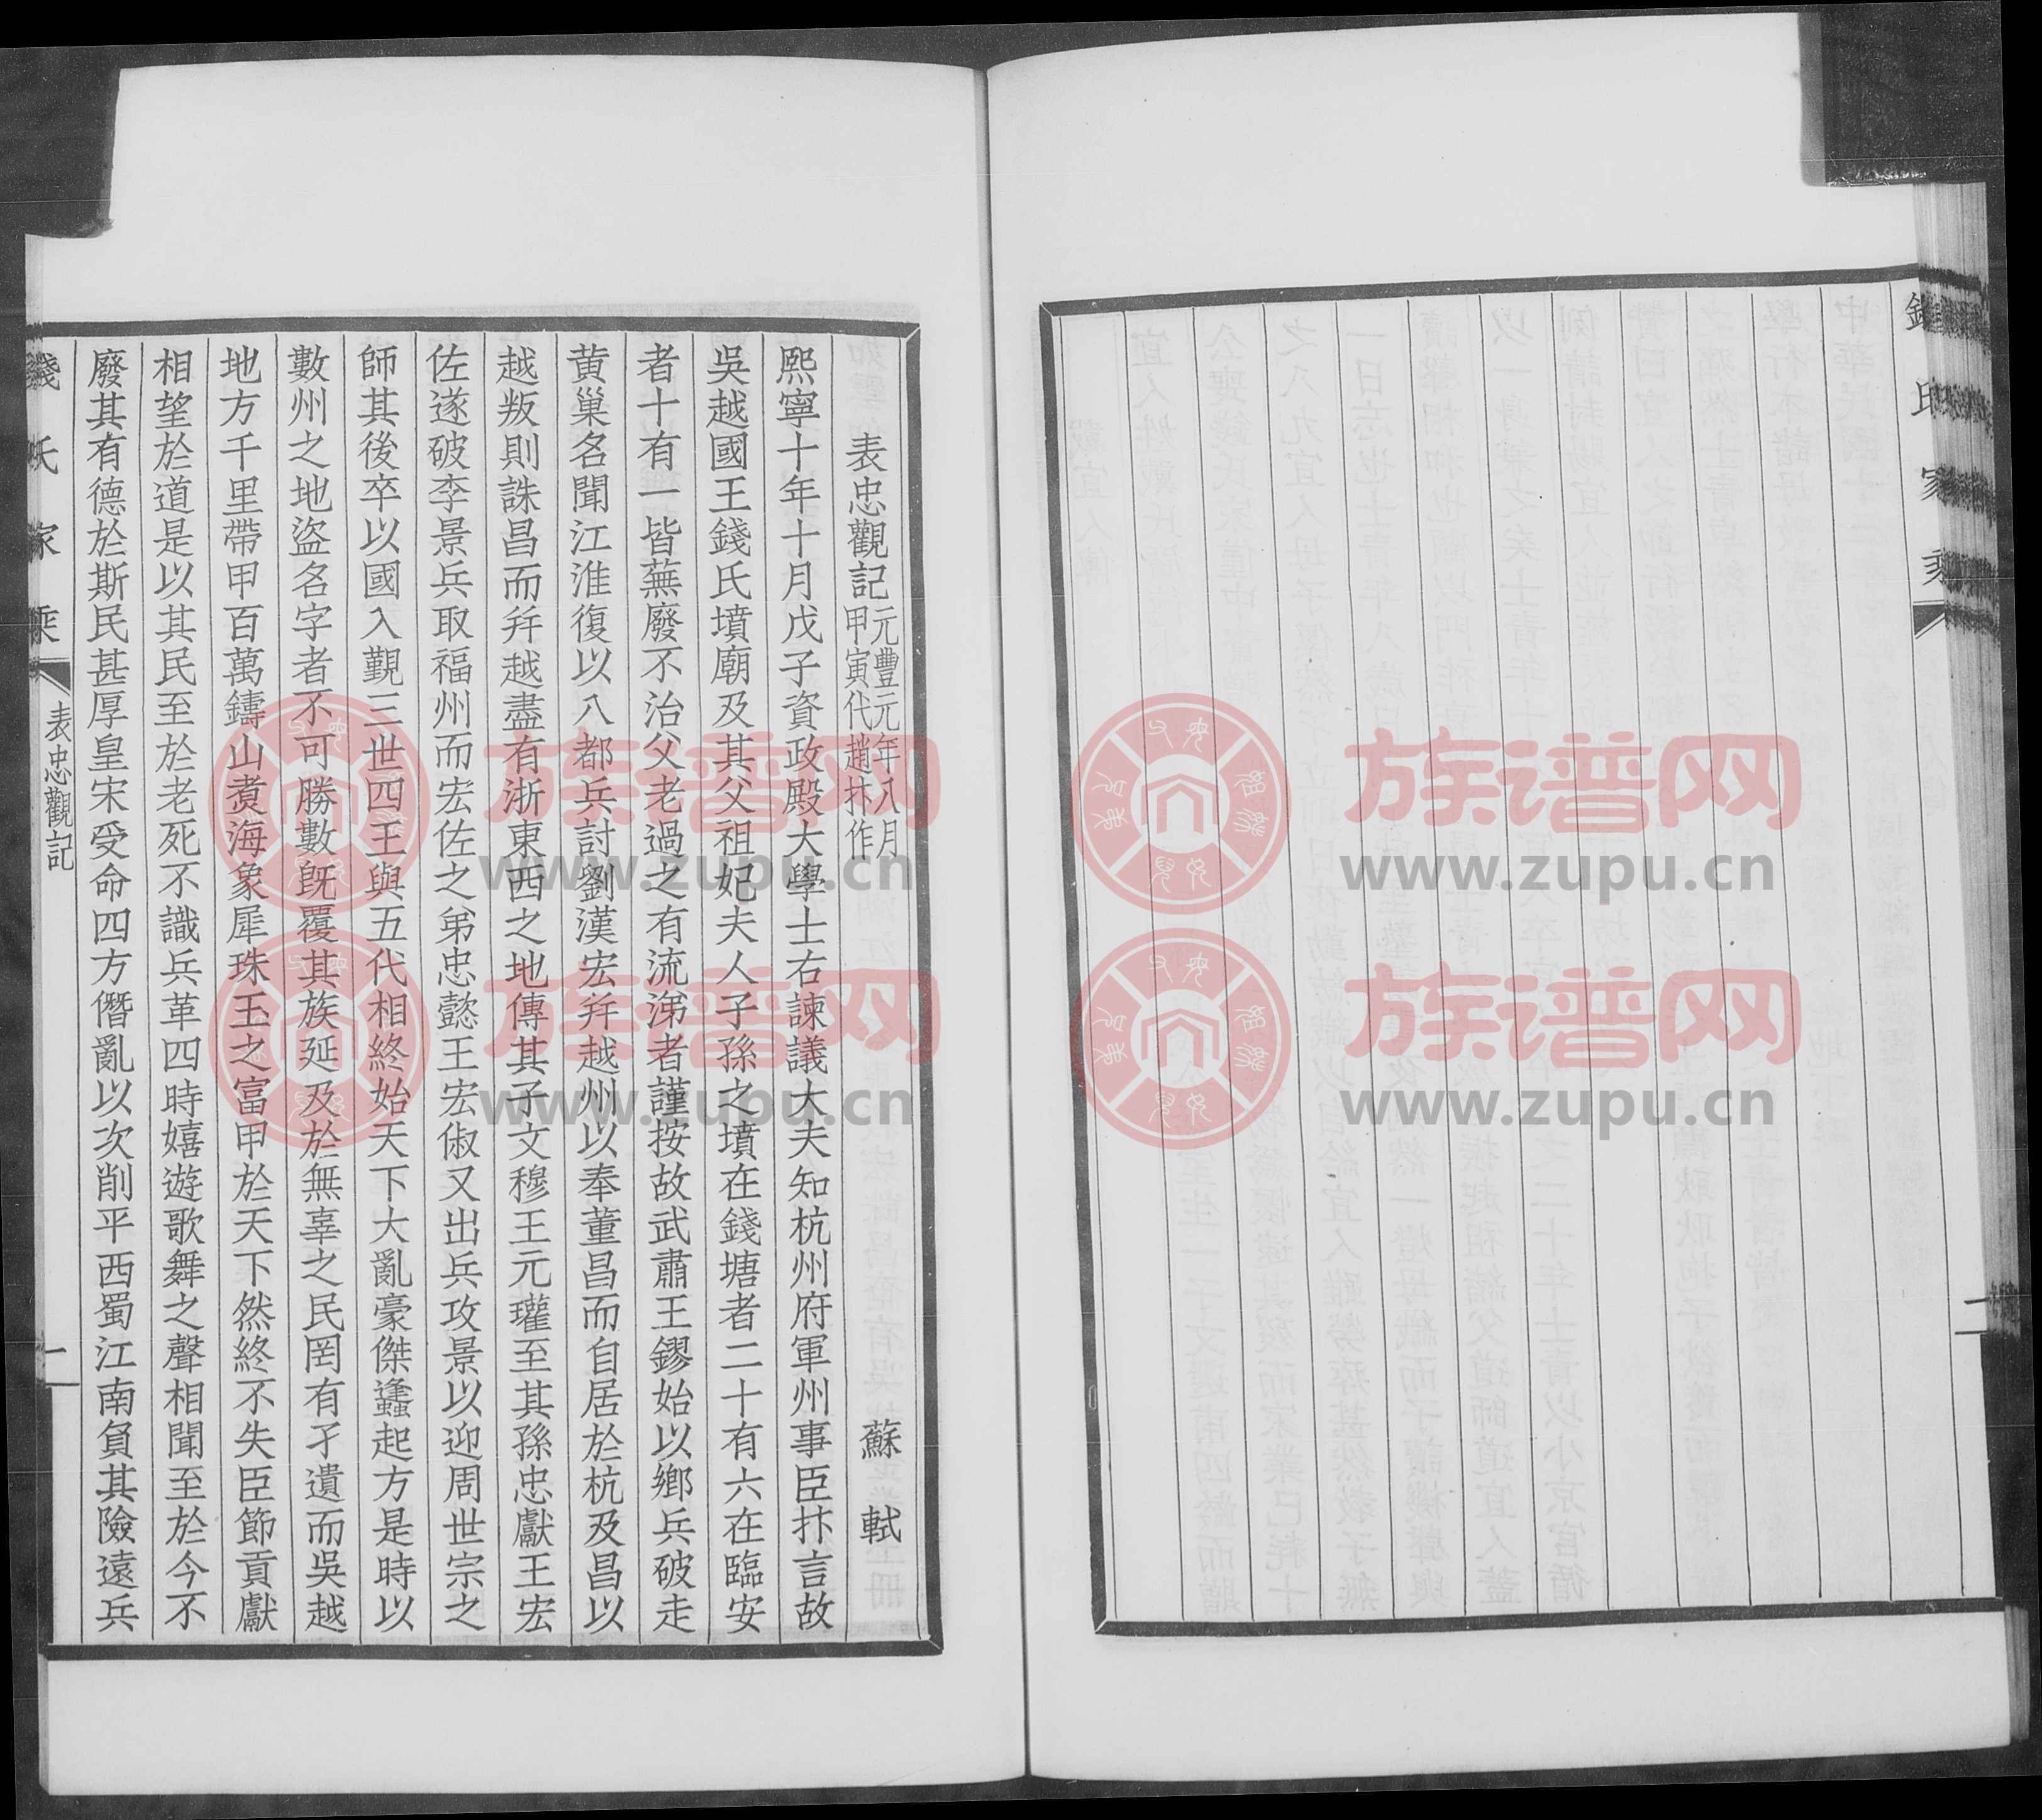 錢氏家乘
表忠觀記 元豐元年八月甲寅代趙抃作 蘇軾
熙寧十年十月戊子資政殿大學士右諫議大夫知杭州府軍州事臣抃言故
吳越國王錢氏墳廟及其父祖妃夫人子孫之墳在錢塘者二十有六在臨安
者十有一皆蕪廢不治父老過之有流涕者謹按故武肅王鏐始以鄉兵破走
黃巢名聞江淮復以八都兵討劉漢宏幷越州以奉董昌而自居於杭及昌以
越叛則誅昌而幷越盡有浙東西之地傳其子文穆王元瓘至其孫忠獻王宏
佐遂破李景兵取福州而宏佐之弟忠懿王宏俶又出兵攻景以迎周世宗之
師其後卒以國入覲三世四王與五代相終始天下大亂豪傑蠭起方是時以
數州之地盜名字者不可勝數旣覆其族延及於無辜之民罔有孑遺而吳越
地方千里帶甲百萬鑄山煮海象犀珠玉之富甲於天下然終不失臣節貢獻
相望於道是以其民至於老死不識兵革四時嬉遊歌舞之聲相聞至於今不
廢其有德於斯民甚厚皇宋受命四方僭亂以次削平西蜀江南負其險遠兵
錢氏家乘 表忠觀記 一
族谱网
www.zupu.cn
族谱网
www.zupu.cn
族谱网
www.zupu.cn
族谱网
www.zupu.cn